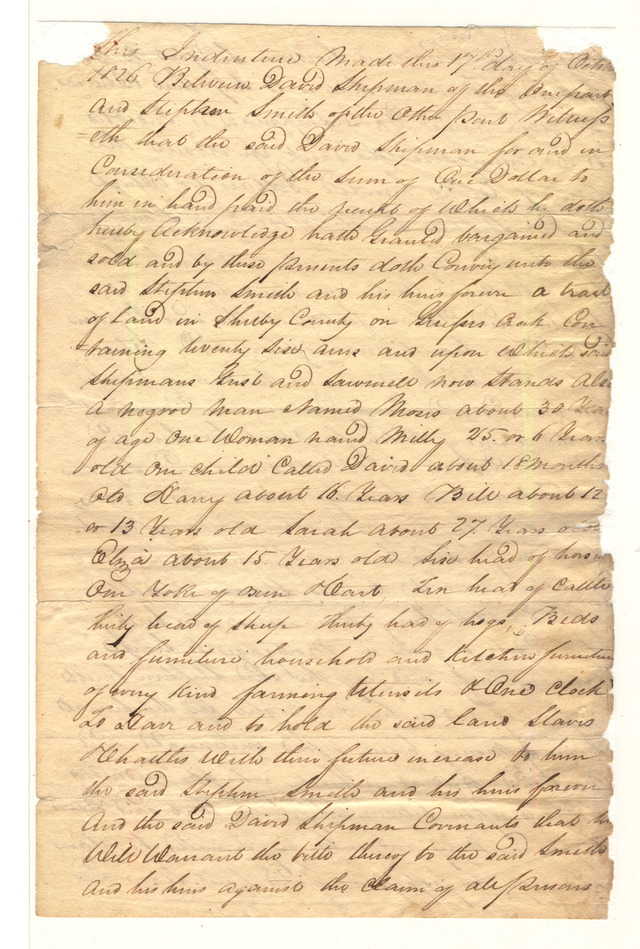 This Indenture Made this 17th day of Octr
1826 Between David Shipman of the One part
And Stephen Smith of the Other part Witness
=eth that the said David Shipman for and in
Consideration of the sum of One Dollar to
him in hand paid the receipt of Which he doth
hereby Acknowledge hath Granted bargained and
sold and by these presents doth Convey unto the
said Stephen Smith and his heirs forever a tract
of land in Shelby County on Creek Con
=taining twenty six acres and upon Which said
Shipmans Grist and Sawmill now Stands Also
A negroe Man Named Moses about 30 Years
of age One Woman named Milly 25 or 6 Years
old One child Called David about 18 Months
Old Harry about 16 Years Bill about 12
or 13 Years old Sarah about 27 Years old
Eliza about 15 Years old Six head of horses
One Yoke of oxen & Cart Ten head of Cattle
thirty head of Sheep thirty head of hogs, Beds
and furniture household and Kitchen furniture
of every Kind farming Utensils & One Clock
To Have and to hold the said land Slaves
& Chattles With their future increase to him
the said Stephen Smith and his heirs forever
And the said David Shipman Covenants that he
Will Warrant the title thereof to the said Smith
And his heirs against the Claim of all persons